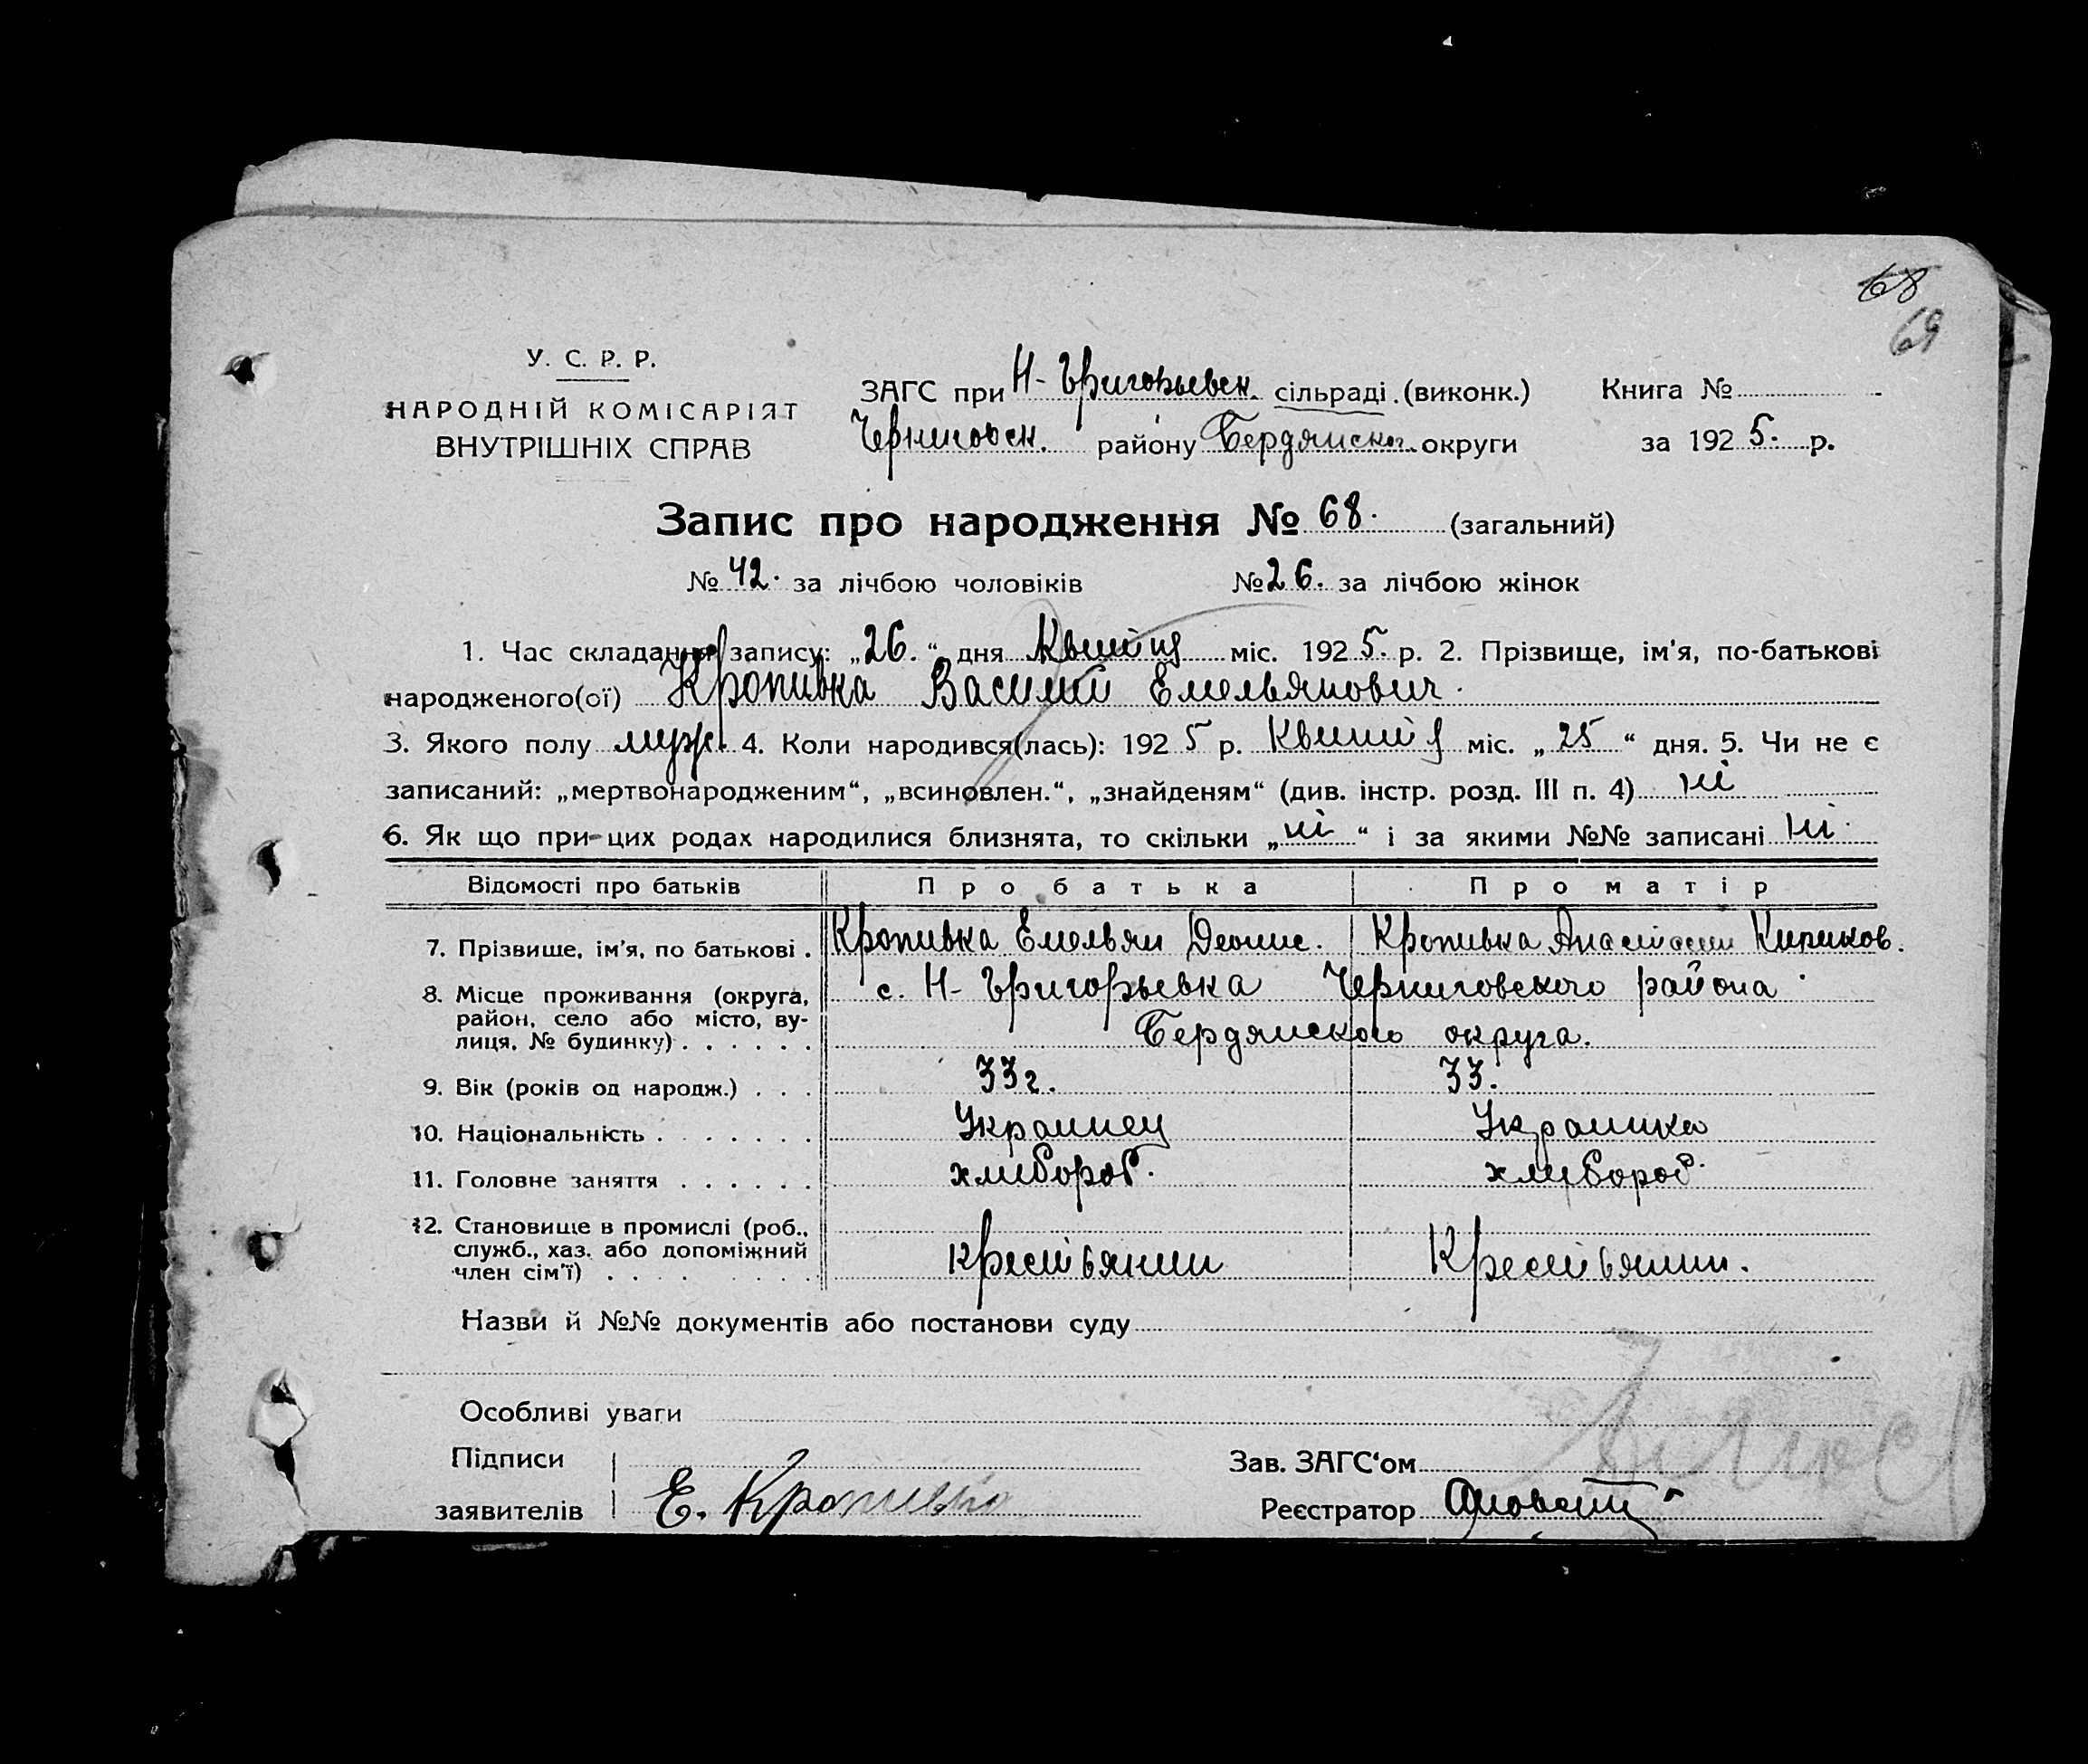 68
69
У. С. Р. Р.
НАРОДНІЙ КОМІСАРІЯТ
ВНУТРІШНІХ СПРАВ
ЗАГС при Н-Григорьевск. сільраді. (виконк.)
Черниговск. району Бердянског. округи
Книга №
за 1925. р.
Запис про народження № 68. (загальний)
№ 42. за лічбою чоловіків № 26. за лічбою жінок
1. Час складання запису: „26.“ дня Квитня міс. 1925. р. 2. Прізвище, ім'я, по-батькові
народженого(ої) Кропивка Василий Емельянович.
3. Якого полу муж. 4. Коли народився(лась): 1925 р. Квитня міс. „25“ дня. 5. Чи не є
записаний: „мертвонародженим“, „всиновлен.“, „знайденям“ (див. інстр. розд. III п. 4) ні
6. Як що при-цих родах народилися близнята, то скільки „ні“ і за якими №№ записані ні.
Відомості про батьків Про батька Про матір
7. Прізвище, ім'я, по батькові . Кропивка Емельян Деонис. Кропивка Анастасии Кириков.
8. Місце проживання (округа, с. Н-Григорьевка Черниговского района
район, село або місто, ву-
лиця, № будинку) . . . . . . Бердянского округа.
9. Вік (років од народж.) . . . 33г. 33.
10. Національність . . . . . . . Украинец Украинка
11. Головне заняття . . . . . . хлибороб. хлибороб.
12. Становище в промислі (роб.,
служб., хаз. або допоміжний Крестьянин Крестьянин.
член сім'ї) . . . . . . . .
Назви й №№ документів або постанови суду
Особливі уваги
Підписи
заявителів Е. Кропивка
Зав. ЗАГС‘ом
Реєстратор